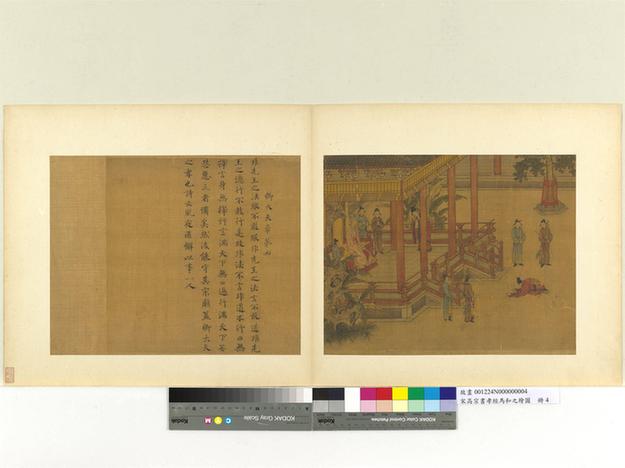 卿大夫章第四
非先王之法服不敢服非先王之法言不敢道非先
王之德行不敢行是故非法不言非道不行口無
擇言身無擇行言滿天下無口過行滿天下無
怨惡三者備矣然後能守其宗廟蓋卿大夫
之孝也詩云夙夜匪懈以事一人
Kodak
C Y M
KODAK Gray Scale
Kodak
KODAK Color Control Patches
故畫 001224N000000004
宋高宗書孝經馬和之繪圖 冊 4